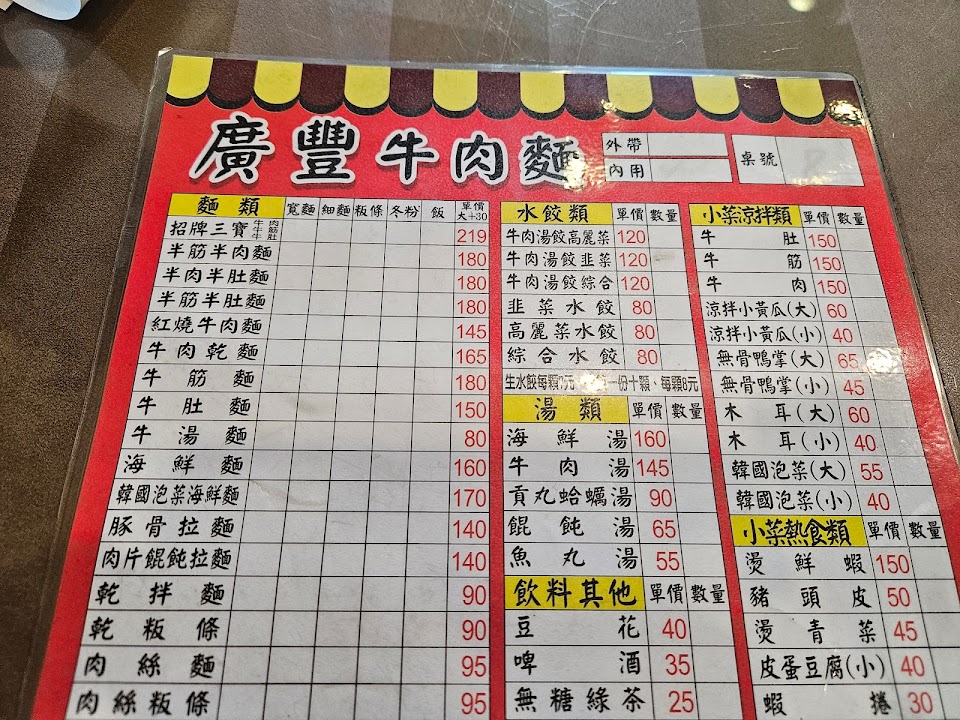 廣豐牛肉麵
外帶
內用
桌號
麵類 寬麵 細麵 粄條 冬粉 飯 單價 大+30
招牌三寶 牛肉 牛筋 牛肚 219
半筋半肉麵 180
半肉半肚麵 180
半筋半肚麵 180
紅燒牛肉麵 145
牛肉乾麵 165
牛筋麵 180
牛肚麵 150
牛湯麵 80
海鮮麵 160
韓國泡菜海鮮麵 170
豚骨拉麵 140
肉片餛飩拉麵 140
乾拌麵 90
乾粄條 90
肉絲麵 95
肉絲粄條 95
水餃類 單價 數量
牛肉湯餃高麗菜 120
牛肉湯餃韭菜 120
牛肉湯餃綜合 120
韭菜水餃 80
高麗菜水餃 80
綜合水餃 80
生水餃每顆 元 一份十顆、每顆8元
湯類 單價 數量
海鮮湯 160
牛肉湯 145
貢丸蛤蠣湯 90
餛飩湯 65
魚丸湯 55
飲料其他 單價 數量
豆花 40
啤酒 35
無糖綠茶 25
小菜涼拌類 單價 數量
牛肚 150
牛筋 150
牛肉 150
涼拌小黃瓜(大) 60
涼拌小黃瓜(小) 40
無骨鴨掌(大) 65
無骨鴨掌(小) 45
木耳(大) 60
木耳(小) 40
韓國泡菜(大) 55
韓國泡菜(小) 40
小菜熱食類 單價 數量
燙鮮蝦 150
豬頭皮 50
燙青菜 45
皮蛋豆腐(小) 40
蝦捲 30